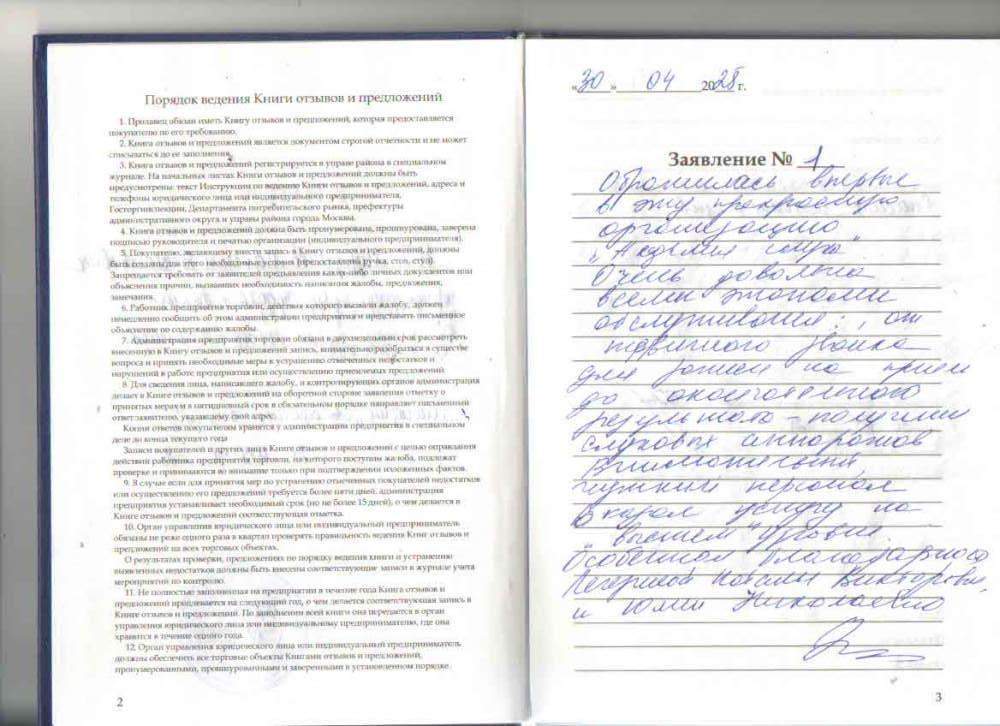 Порядок ведения Книги отзывов и предложений
1. Продавец обязан иметь Книгу отзывов и предложений, которая предоставляется
покупателю по его требованию.
2. Книга отзывов и предложений является документом строгой отчетности и не может
списываться до ее заполнения.
3. Книга отзывов и предложений регистрируется в управе района в специальном
журнале. На начальных листах Книги отзывов и предложений должны быть
предусмотрены: текст Инструкции по ведению Книги отзывов и предложений, адреса и
телефоны юридического лица или индивидуального предпринимателя,
Госторгинспекции, Департамента потребительского рынка, префектуры
административного округа и управы района города Москвы.
4. Книга отзывов и предложений должна быть пронумерована, прошнурована, заверена
подписью руководителя и печатью организации (индивидуального предпринимателя).
5. Покупателю, желающему внести запись в Книгу отзывов и предложений, должны
быть созданы для этого необходимые условия (предоставлены ручка, стол, стул).
Запрещается требовать от заявителя предъявления каких-либо личных документов или
объяснения причин, вызвавших необходимость написания жалобы, предложения,
замечания.
6. Работник предприятия торговли, действия которого вызвали жалобу, должен
немедленно сообщить об этом администрации предприятия и представить письменное
объяснение по содержанию жалобы.
7. Администрация предприятия торговли обязана в двухнедельный срок рассмотреть
внесенную в Книгу отзывов и предложений запись, внимательно разобраться в существе
вопроса и принять необходимые меры к устранению отмеченных недостатков и
нарушений в работе предприятия или осуществлению приемлемых предложений.
8. Для сведения лица, написавшего жалобу, и контролирующих органов администрация
делает в Книге отзывов и предложений на оборотной стороне заявления отметку о
принятых мерах и в пятидневный срок в обязательном порядке направляет письменный
ответ заявителю, указавшему свой адрес.
Копии ответов покупателям хранятся у администрации предприятия в специальном
деле до конца текущего года
Записи покупателей и других лиц в Книге отзывов и предложений с целью оправдания
действий работника предприятия торговли, на которого поступила жалоба, подлежат
проверке и принимаются во внимание только при подтверждении изложенных фактов.
9. В случае если для принятия мер по устранению отмеченных покупателей недостатков
или осуществлению его предложений требуется более пяти дней, администрация
предприятия устанавливает необходимый срок (но не более 15 дней), о чем делается в
Книге отзывов и предложений соответствующая отметка.
10. Орган управления юридического лица или индивидуальный предприниматель
обязаны не реже одного раза в квартал проверять правильность ведения Книг отзывов и
предложений на всех торговых объектах.
О результатах проверки, предложениях по порядку ведения книги и устранению
выявленных недостатков должны быть внесены соответствующие записи в журнале учета
мероприятий по контролю.
11. Не полностью заполненная на предприятии в течение года Книга отзывов и
предложений продлевается на следующий год, о чем делается соответствующая запись в
Книге отзывов и предложений. По заполнении всей книги она передается в орган
управления юридического лица или индивидуальному предпринимателю, где она
хранится в течение одного года.
12. Орган управления юридического лица или индивидуальный предприниматель
должны обеспечить все торговые объекты Книгами отзывов и предложений,
пронумерованными, прошнурованными и заверенными в установленном порядке.
2
«30» 04 2025 г.
Заявление № 1
Обратилась впервые
в эту прекрасную
организацию
„Академия слуха"
Очень довольна
всеми этапами
обслуживания:, от
первичного звонка
для записи на прием
до окончательного
результата - получения
слуховых аппаратов
Внимательный,
чуткий персонал
Оказал услугу на
"высшем" уровне.
Особенная благодарность
Наталии Викторовне
и Юлии Николаевне
3